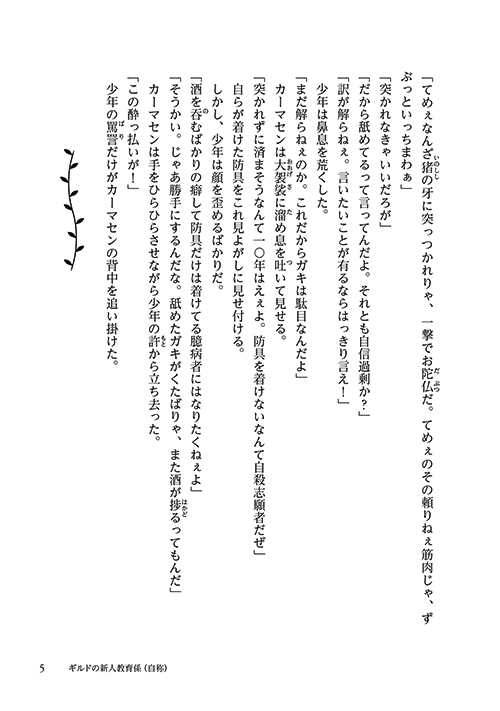 「てめぇなんざ猪の牙に突っつかれりゃ、一撃でお陀仏だ。てめぇのその頼りねぇ筋肉じゃ、ず
ぶっといっちまわぁ」
「突かれなきゃいいだろが」
「だから舐めてるって言ってんだよ。それとも自信過剰か?」
「訳が解らねぇ。言いたいことが有るならはっきり言え!」
少年は鼻息を荒くした。
「まだ解らねぇのか。これだからガキは駄目なんだよ」
カーマセンは大袈裟に溜め息を吐いて見せる。
「突かれずに済まそうなんて一〇年はえぇよ。防具を着けないなんて自殺志願者だぜ」
自らが着けた防具をこれ見よがしに見せ付ける。
しかし、少年は顔を歪めるばかりだ。
「酒を呑むばかりの癖して防具だけは着けてる臆病者にはなりたくねぇよ」
「そうかい。じゃあ勝手にするんだな。舐めたガキがくたばりゃ、また酒が捗るってもんだ」
カーマセンは手をひらひらさせながら少年の許から立ち去った。
「この酔っ払いが!」
少年の罵詈だけがカーマセンの背中を追い掛けた。
5 ギルドの新人教育係(自称)